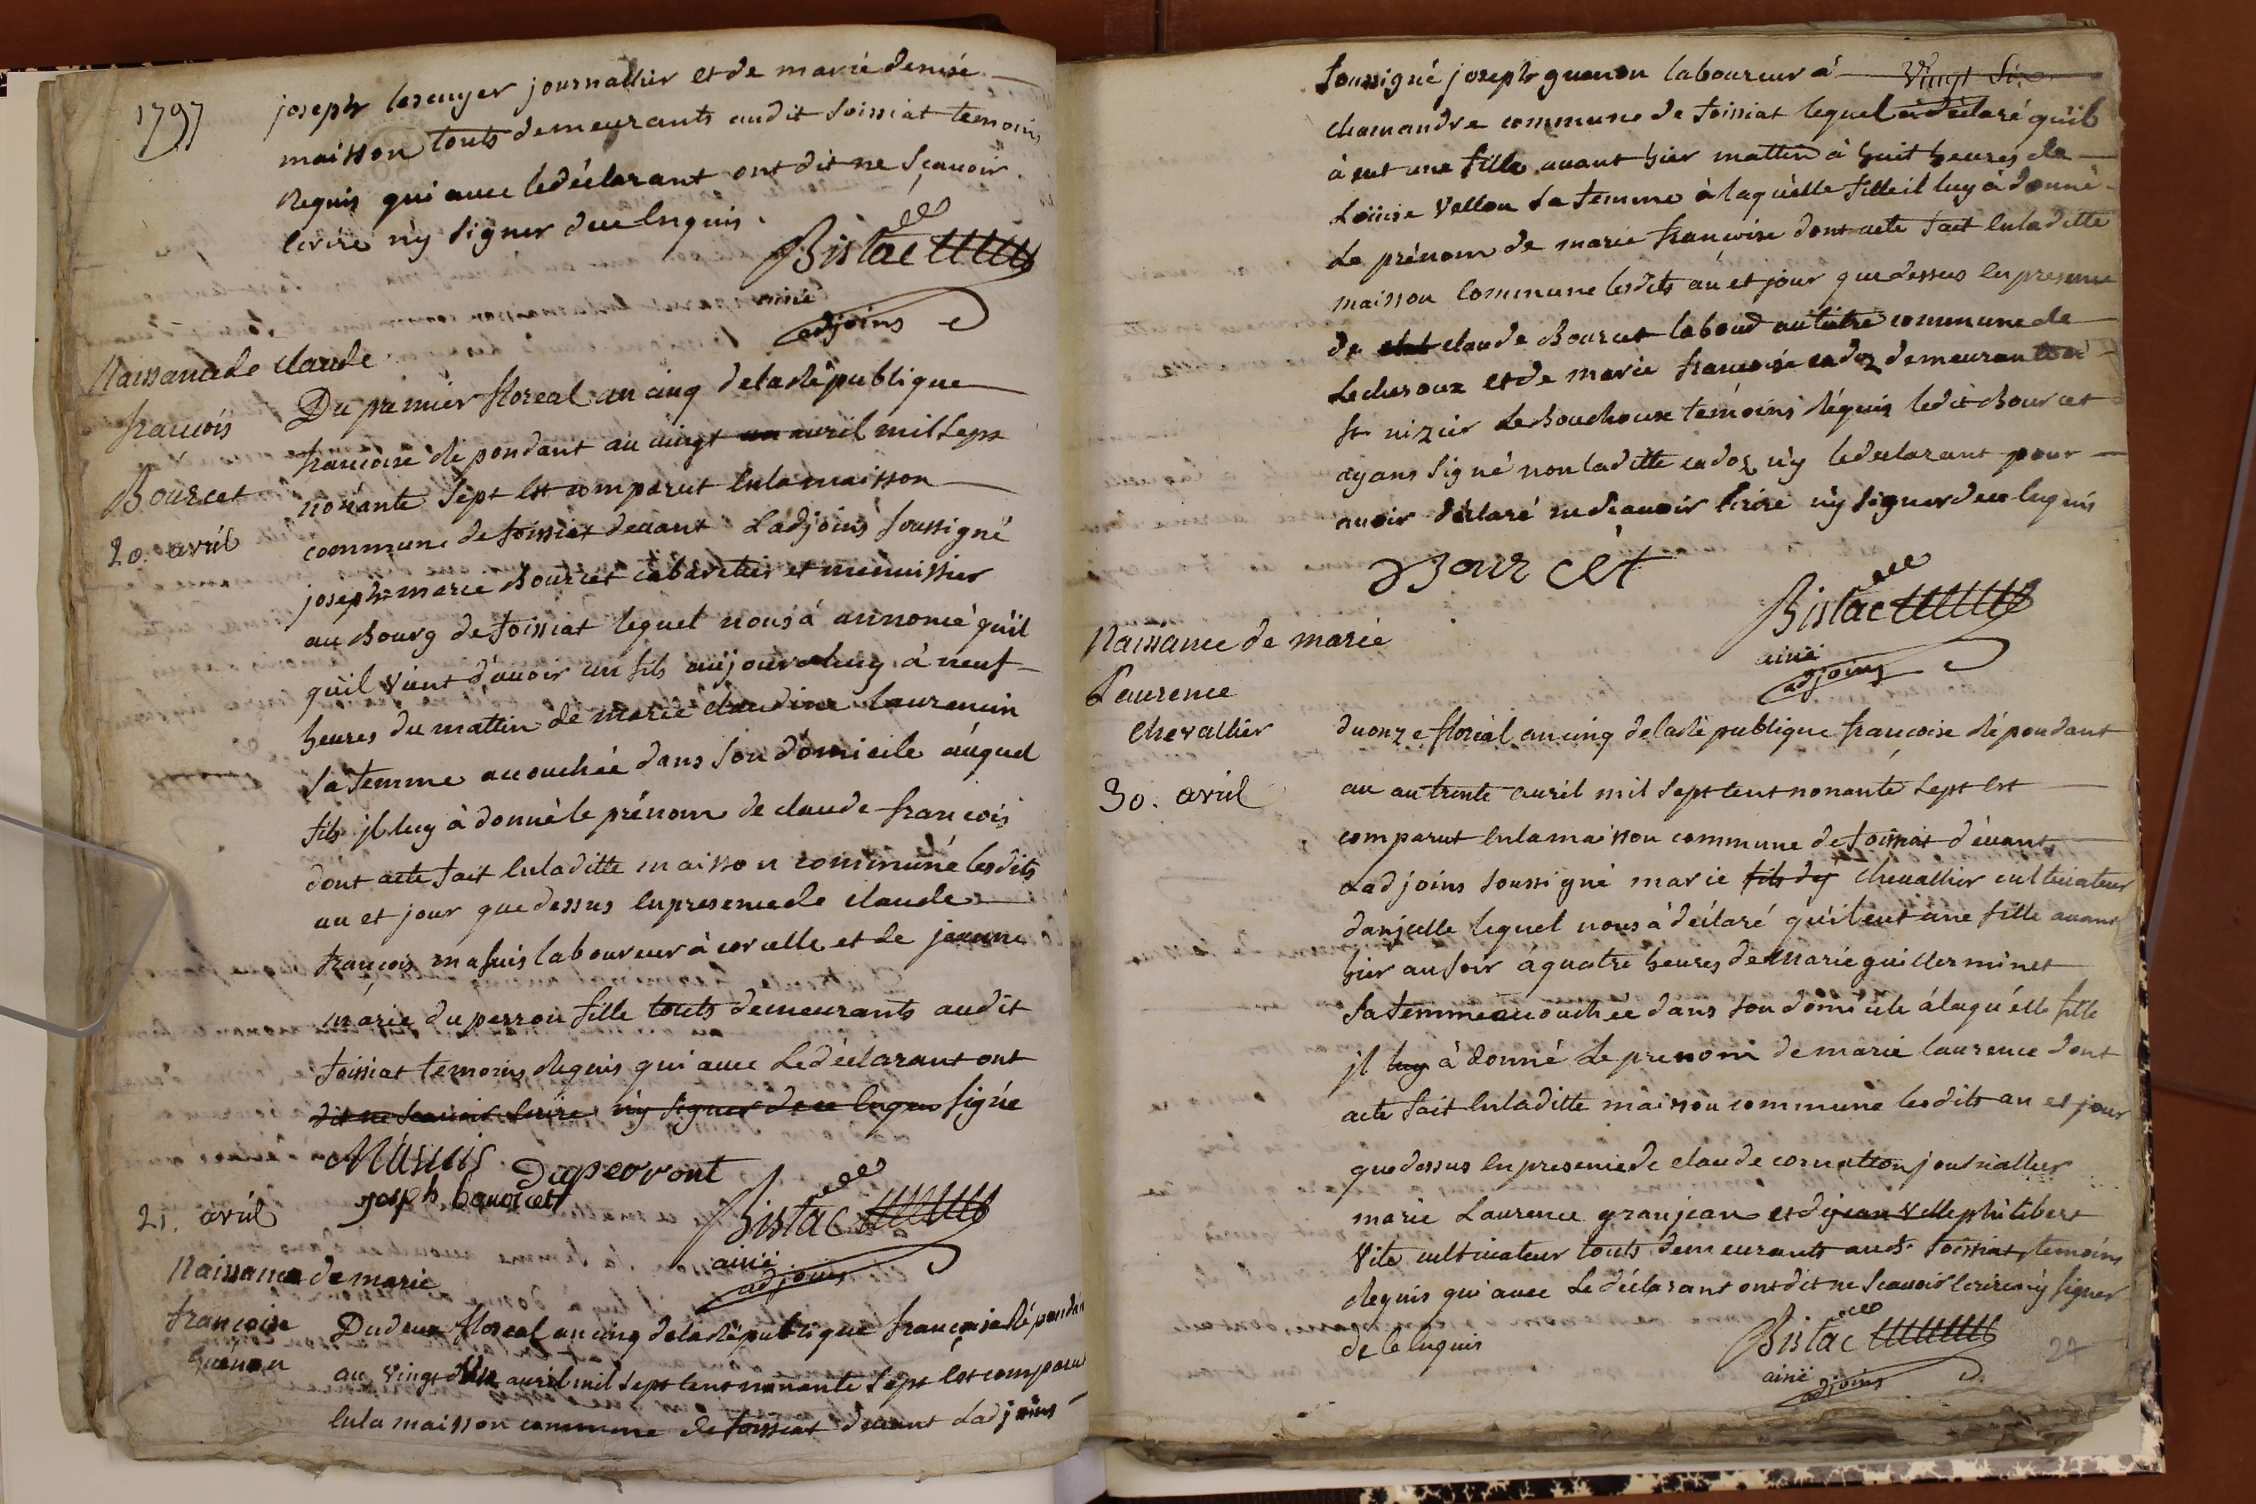 1797
joseph lescuyer journallier et de marie denise
maisson touts demeurants audit toissiat temoins
Requis qui avec le déclarant ont dit ne sçavoir
lcrire n'y signer de ce lnquis.
Bistac
ainé
adjoins
Naissance de claude
françois
Bourcet
20. avril
Du premier floreal an cinq de la République
francoise Répondant au vingt avril mil sept
nonante sept est comparut en la maisson
commune de toissiat devant Ladjoins soussigné
joseph marie Bourcet cabaretier et menuissier
au Bourg de toissiat lequel nous à annoncé qu'il
qu'il vient d'avoir un fils aujourdhuy à neuf
heures du mattin de marie claudine laurencin
sa femme accouchée dans son domicile auquel
fils jl luy à donné le prénom de claude françois
dont acte fait en laditte maisson commune lesdits
an et jour que dessus en presence de claude
françois masuis laboureur à corcelle et de jeanne
marie duperron fille touts demeurants audit
toissiat temoins Requis qui avec Le déclarant ont
dit ne scavoir lcrire n'y signer de ce lnquis signé
Masuis
Duperront
Joseph bourcet
Bistac
ainé
adjoins
21. avril
Naissance de marie
francoise
Guenon
Du deux floreal an cinq de la République françoise Répondant
au vingt avril mil sept cent nonante sept est comparut
en la maisson commune de toissiat devant Ladjoins
soussigné joseph guenon laboureur à vingt six
chamandre commune de toissiat lequel à déclaré qu'il
à eut une fille avant hier mattin à huit heures de
Loüise Vallon sa femme à laquelle fille il luy à donné
Le prénom de marie francoise dont acte fait en laditte
maisson commune lesdits an et jour que dessus en presence
de claude Bourcet laboud commune de
et de marie francoise cadoz demeurant
st nizier Le Bouchoux temoins Réquis ledit Bourcet
ayans signé non laditte cadoz n'y le declarant pour
avoir déclaré ne scavoir lcrire n'y signer de ce lnquis
Bourcet
Bistac
ainé
adjoins
Naissance de marie
Laurence
Chevallier
30. avril
du onze floréal an cinq de la République francoise Répondant
au au trente avril mil sept cent nonante sept est
comparut en la maisson commune de toissiat devant
Ladjoins soussigné marie fils dy chevallier cultivateur
danjcelle lequel nous à déclaré qu'il eut une fille avant
hier au soir à quatre heures de Marie guillerminet
sa femme accouchée dans son domicile à laquelle fille
jl luy à donné Le prenom de marie laurence dont
acte fait en laditte maisson commune lesdits an et jour
que dessus en presence de claude journallier
marie Laurence granjean et dejean Velle philibert
Vite cultivateur touts demeurants aud. toissiat temoins
Requis qui avec Le déclarant ont dit ne scavoir lcrire n'y signer
de le lnquis
Bistac
ainé
adjoins
27